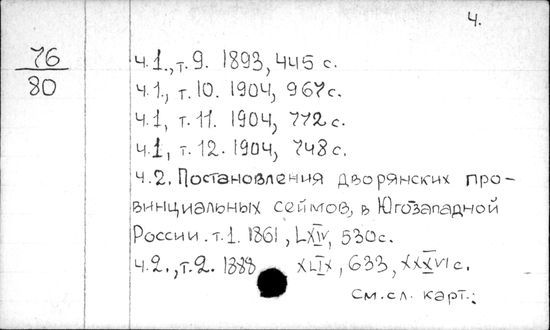 4.
76
80
ч.1., т.9. 1893, 445 с.
ч.1., т.10. 1904, 967 с.
ч.1, т.11. 1904, 772 с.
ч.1, т.12. 1904, 748 с.
ч.2. Постановления дворянских про-
винциальных сеймов, в Югозападной
России. т.1. 1861, LXIV, 530 с.
ч.2., т.2. 1888 XLIX, 633, XXXVI с.
См. сл. карт.: